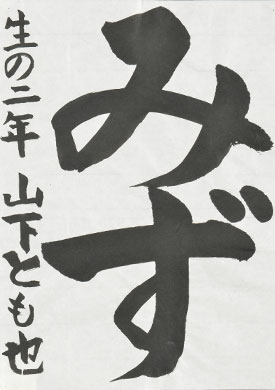 みず
生の二年 山下とも也